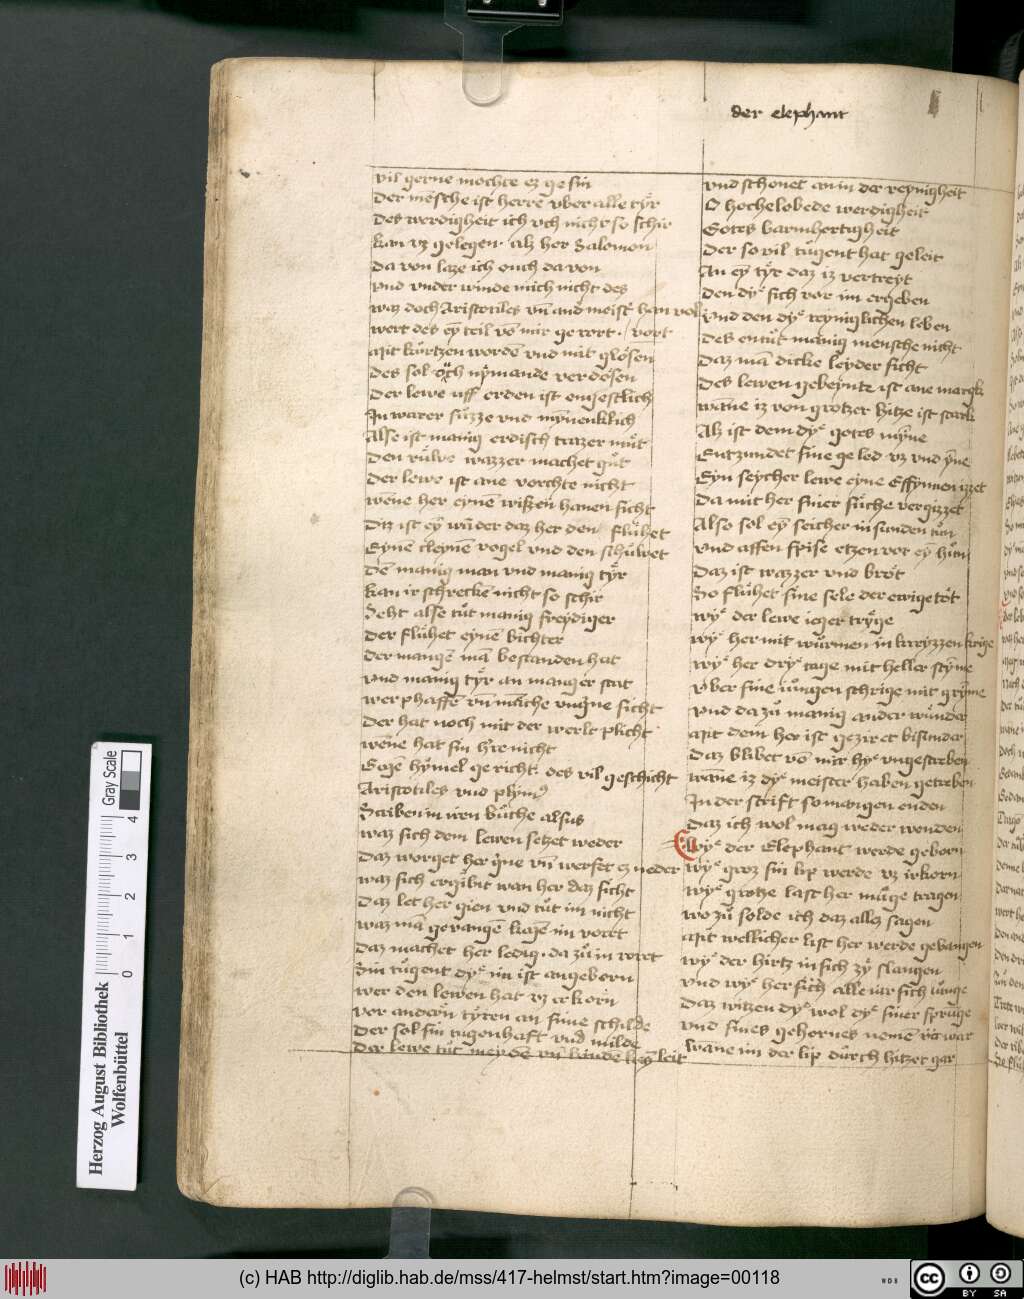 der elephant
vil gerne mochte ez ge sin
Der mēsche ist herre vber alle tyr̈
Des werdigheit ich vch nicht so schir
kan vz gelegen · alz her Salomon
da von laze ich ouch da von
vnd vnder winde mich nicht des
waz doch Aristotiles vn̄ and meist' han vol
wert des ey̅ teil vō mir ge rort · vort
Mit kürtzen wordē vnd mit glösen
des sol öch nÿmande verdösen
Der lewe uff erden ist engestlich
In warer süzze vnd mȳnenklich
Alse ist manig erdisch trazer müt
Den wazzer machet güt
Der lewe ist ane vorchte nicht
wēne her eynē wissen hanen sicht
Diz ist eȳ wūder daz her den flühet
Eynē cleynē vogel vnd den schüwet
dē manig man vnd manig tÿr
kan ir schreckē nicht so schir
Seht alse tüt manig freydiger
der flühet eynē bichter
der mangē mā bestanden hat
vnd manig tÿr an manger stat
wer phaffē vn̄ māche vngne sicht
Der hat noch mit der werlt plicht
wēne hat sin h're nicht
Gozē hÿmel ge richt des vil geschicht
Aristotiles vnd
Scriben in iren büche alsus
waz sich dem lewen setzet weder
Daz worget her vn̄ werfet ez neder
waz sich ergibt wan her daz sicht
Daz let her gien vnd tüt im nicht
waz mā gevangē im voret
Daz machet her ledig · da zü in rort
Sin tügent dy im ist angeborn
wer den lewen hat vz erkorn
vor andern tÿren an sime schilde
Der sol sin tugenhaft vnd milde
Der lewe tüt vn̄ kindē leit
vnd schonet an in der reynigheit
O hochelobede werdigheit
Gotes barmhertigheit
Der so vil tügent hat geleit
An eȳ tÿr daz iz vertreyt
den dy sich vor im ergeben
Vnd den dy reyniglichen leben
des entüt manig mensche nicht
Daz mā dicke leyder sicht
Des lewen gebeynte ist ane margk
wāne iz von grotzer hitze ist stark
Alz ist dem dy gotes mȳne
Entzundet sine ge led vz vnd ȳne
Eyn seycher lewe eyne Effynnen izzet
Da mit her siner süche vergizzet
Also sol eȳ seicher in sunden tün
vnd affen spise etzen vor eȳ hün
Daz ist wazzer vnd bröt
So flühet sine sele der ewige töt
wy der lewe ieger tryge
wy her mit würmen in
wy her dry tage mit heller stȳme
vber sine iüngen schrige mit grȳme
vnd da zü manig ander wunder
Mit dem her ist geziret bisunder
Daz blibet vō mir hy vngescreben
wāne iz dy meister haben gescreben
In der scrift so mangen enden
Daz ich wol mag weder wenden
Wy der Elephant werde geborn
wy groz sin lip werde vz irkorn
wy grotze last her müge tragen
wo zü solde ich daz allez sagen
Mit wellicher list her werde gevangen
wy der hirtz in sich zÿ slangen
vnd wy her sich alle iar sich iünge
Daz witzen dy wol dy siner sprunge
vnd sines gehornes nemē war
wāne im der lip dürch hitzet gar
Gray Scale
0 1 2 3 4
Herzog August Bibliothek
Wolfenbüttel
(c) HAB http://diglib.hab.de/mss/417-helmst/start.htm?image=00118
WDB
cc BY SA